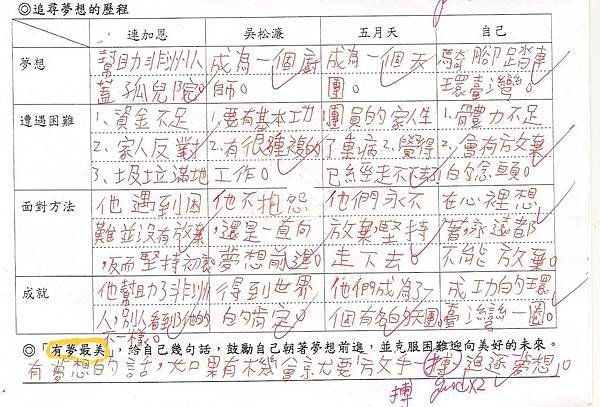 ◎追尋夢想的歷程
連加恩 吳松濂 五月天 自己
夢想
幫助非洲人蓋孤兒院。
成為一個廚師。
成為一個天團。
騎腳踏車環臺灣。
遭遇困難
1、資金不足
2、家人反對
3、垃圾滿地
1、要有基本功
2、有很種複的工作。
團員的家人生了重病2、覺得已經走不下去
1、體力不足
2、會有放棄的念頭。
面對方法
他遇到困難並沒有放棄,反而堅持初衷
他不抱怨,還是一直向夢想前進。
他們永不放棄,堅持走下去。
在心裡想著,永遠都不能放棄。
成就
他幫助了非洲人,別人看到他的不一樣。
得到世界的肯定。
他們成為了一個有名的天團。
成功的環臺灣一圈。
◎「有夢最美」,給自己幾句話,鼓勵自己朝著夢想前進,並克服困難迎向美好的未來。
有夢想的話,如果有機會就要放手一搏,追逐夢想。
搏 good x2